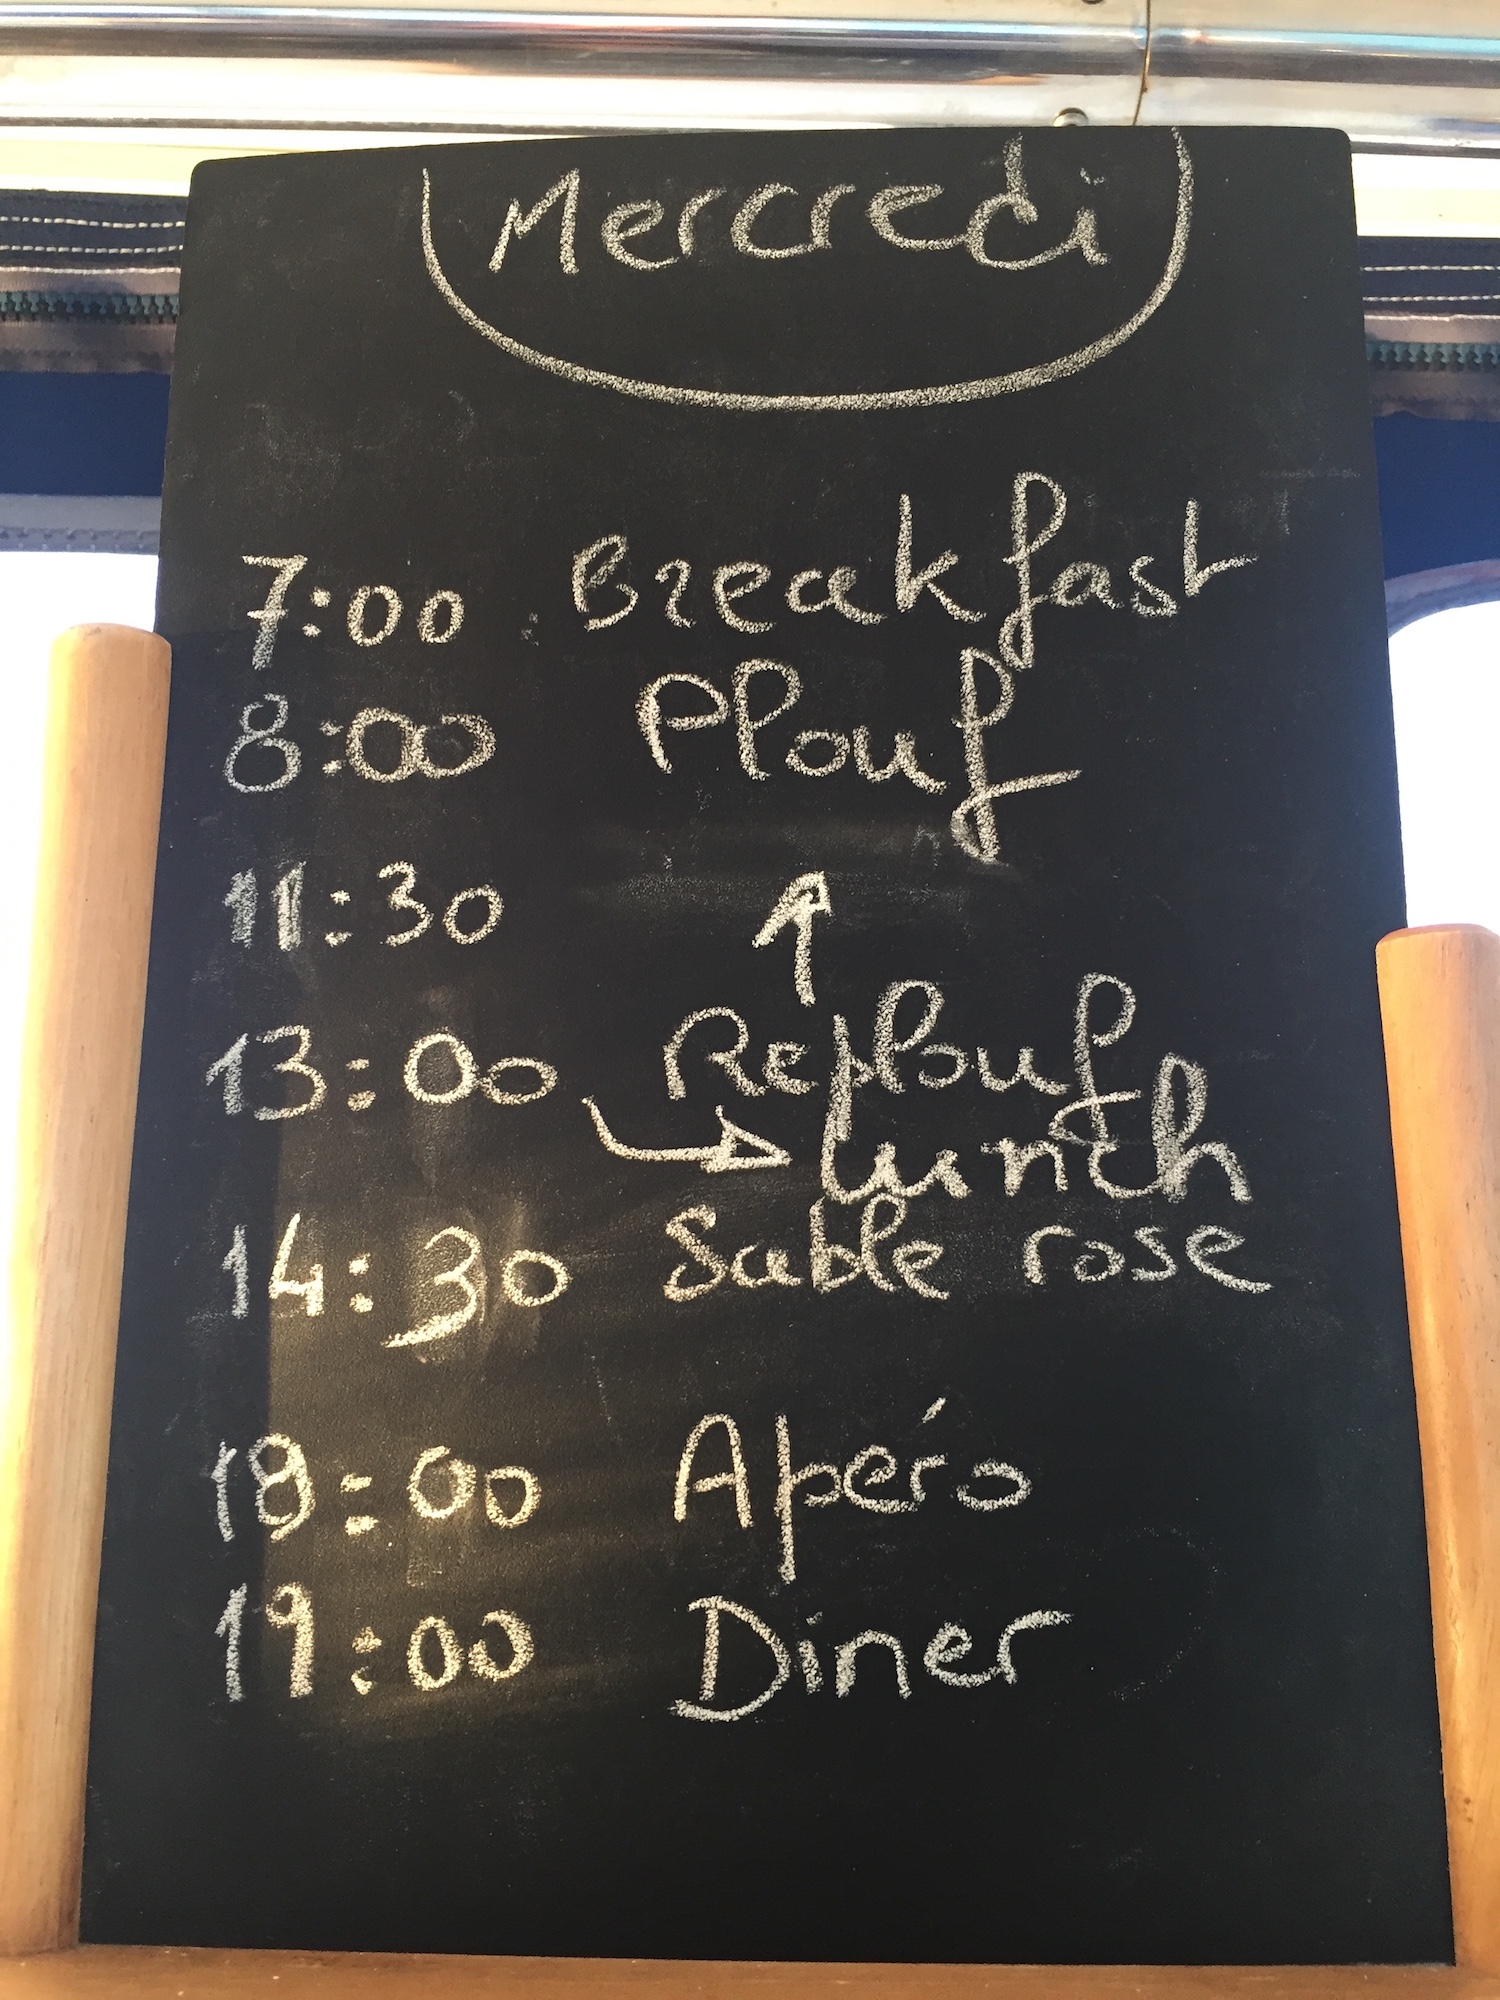 Mercredi
7:00 Breakfast
8:00 Plouf
11:30 ↑
13:00 Replouf
→ Lunch
14:30 Sable rose
18:00 Apéro
19:00 Diner